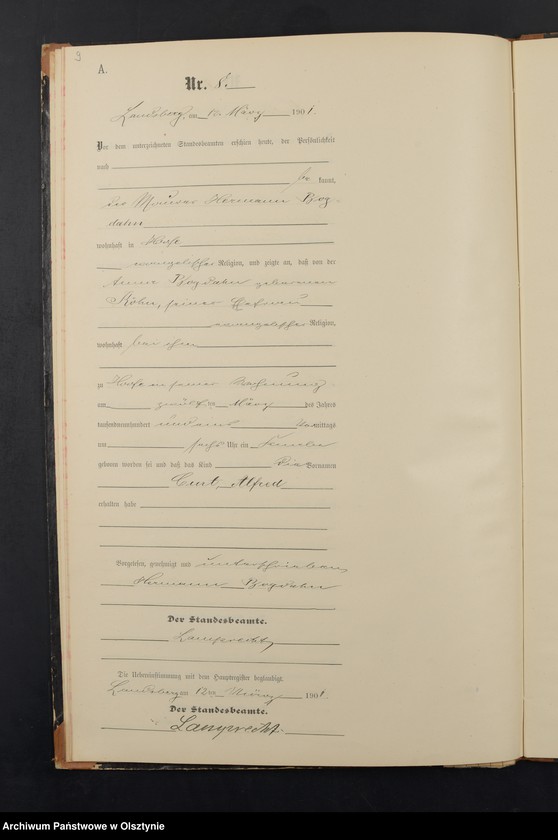 9
A.
Nr. 8.
Landsberg, am 12. März 1901.
Vor dem unterzeichneten Standesbeamten erschien heute, der Persönlichkeit
nach
be kannt,
der Maurer Hermann Bog-
dahn
wohnhaft in
evangelischer Religion, und zeigte an, daß von der
Anna Bogdahn geborenen
seiner Ehefrau
evangelischer Religion,
wohnhaft bei ihm
zu in seiner Wohnung
am ten März des Jahres
tausendneunhundert und eins mittags
um sechs Uhr ein Knabe
geboren worden sei und daß das Kind die Vornamen
Curt, Alfred
erhalten habe
Vorgelesen, genehmigt und unterschrieben
Hermann Bogdahn
Der Standesbeamte.
Lamprecht
Die Uebereinstimmung mit dem Hauptregister beglaubigt.
Landsberg am 12ten März 1901.
Der Standesbeamte.
Lamprecht.
Archiwum Państwowe w Olsztynie